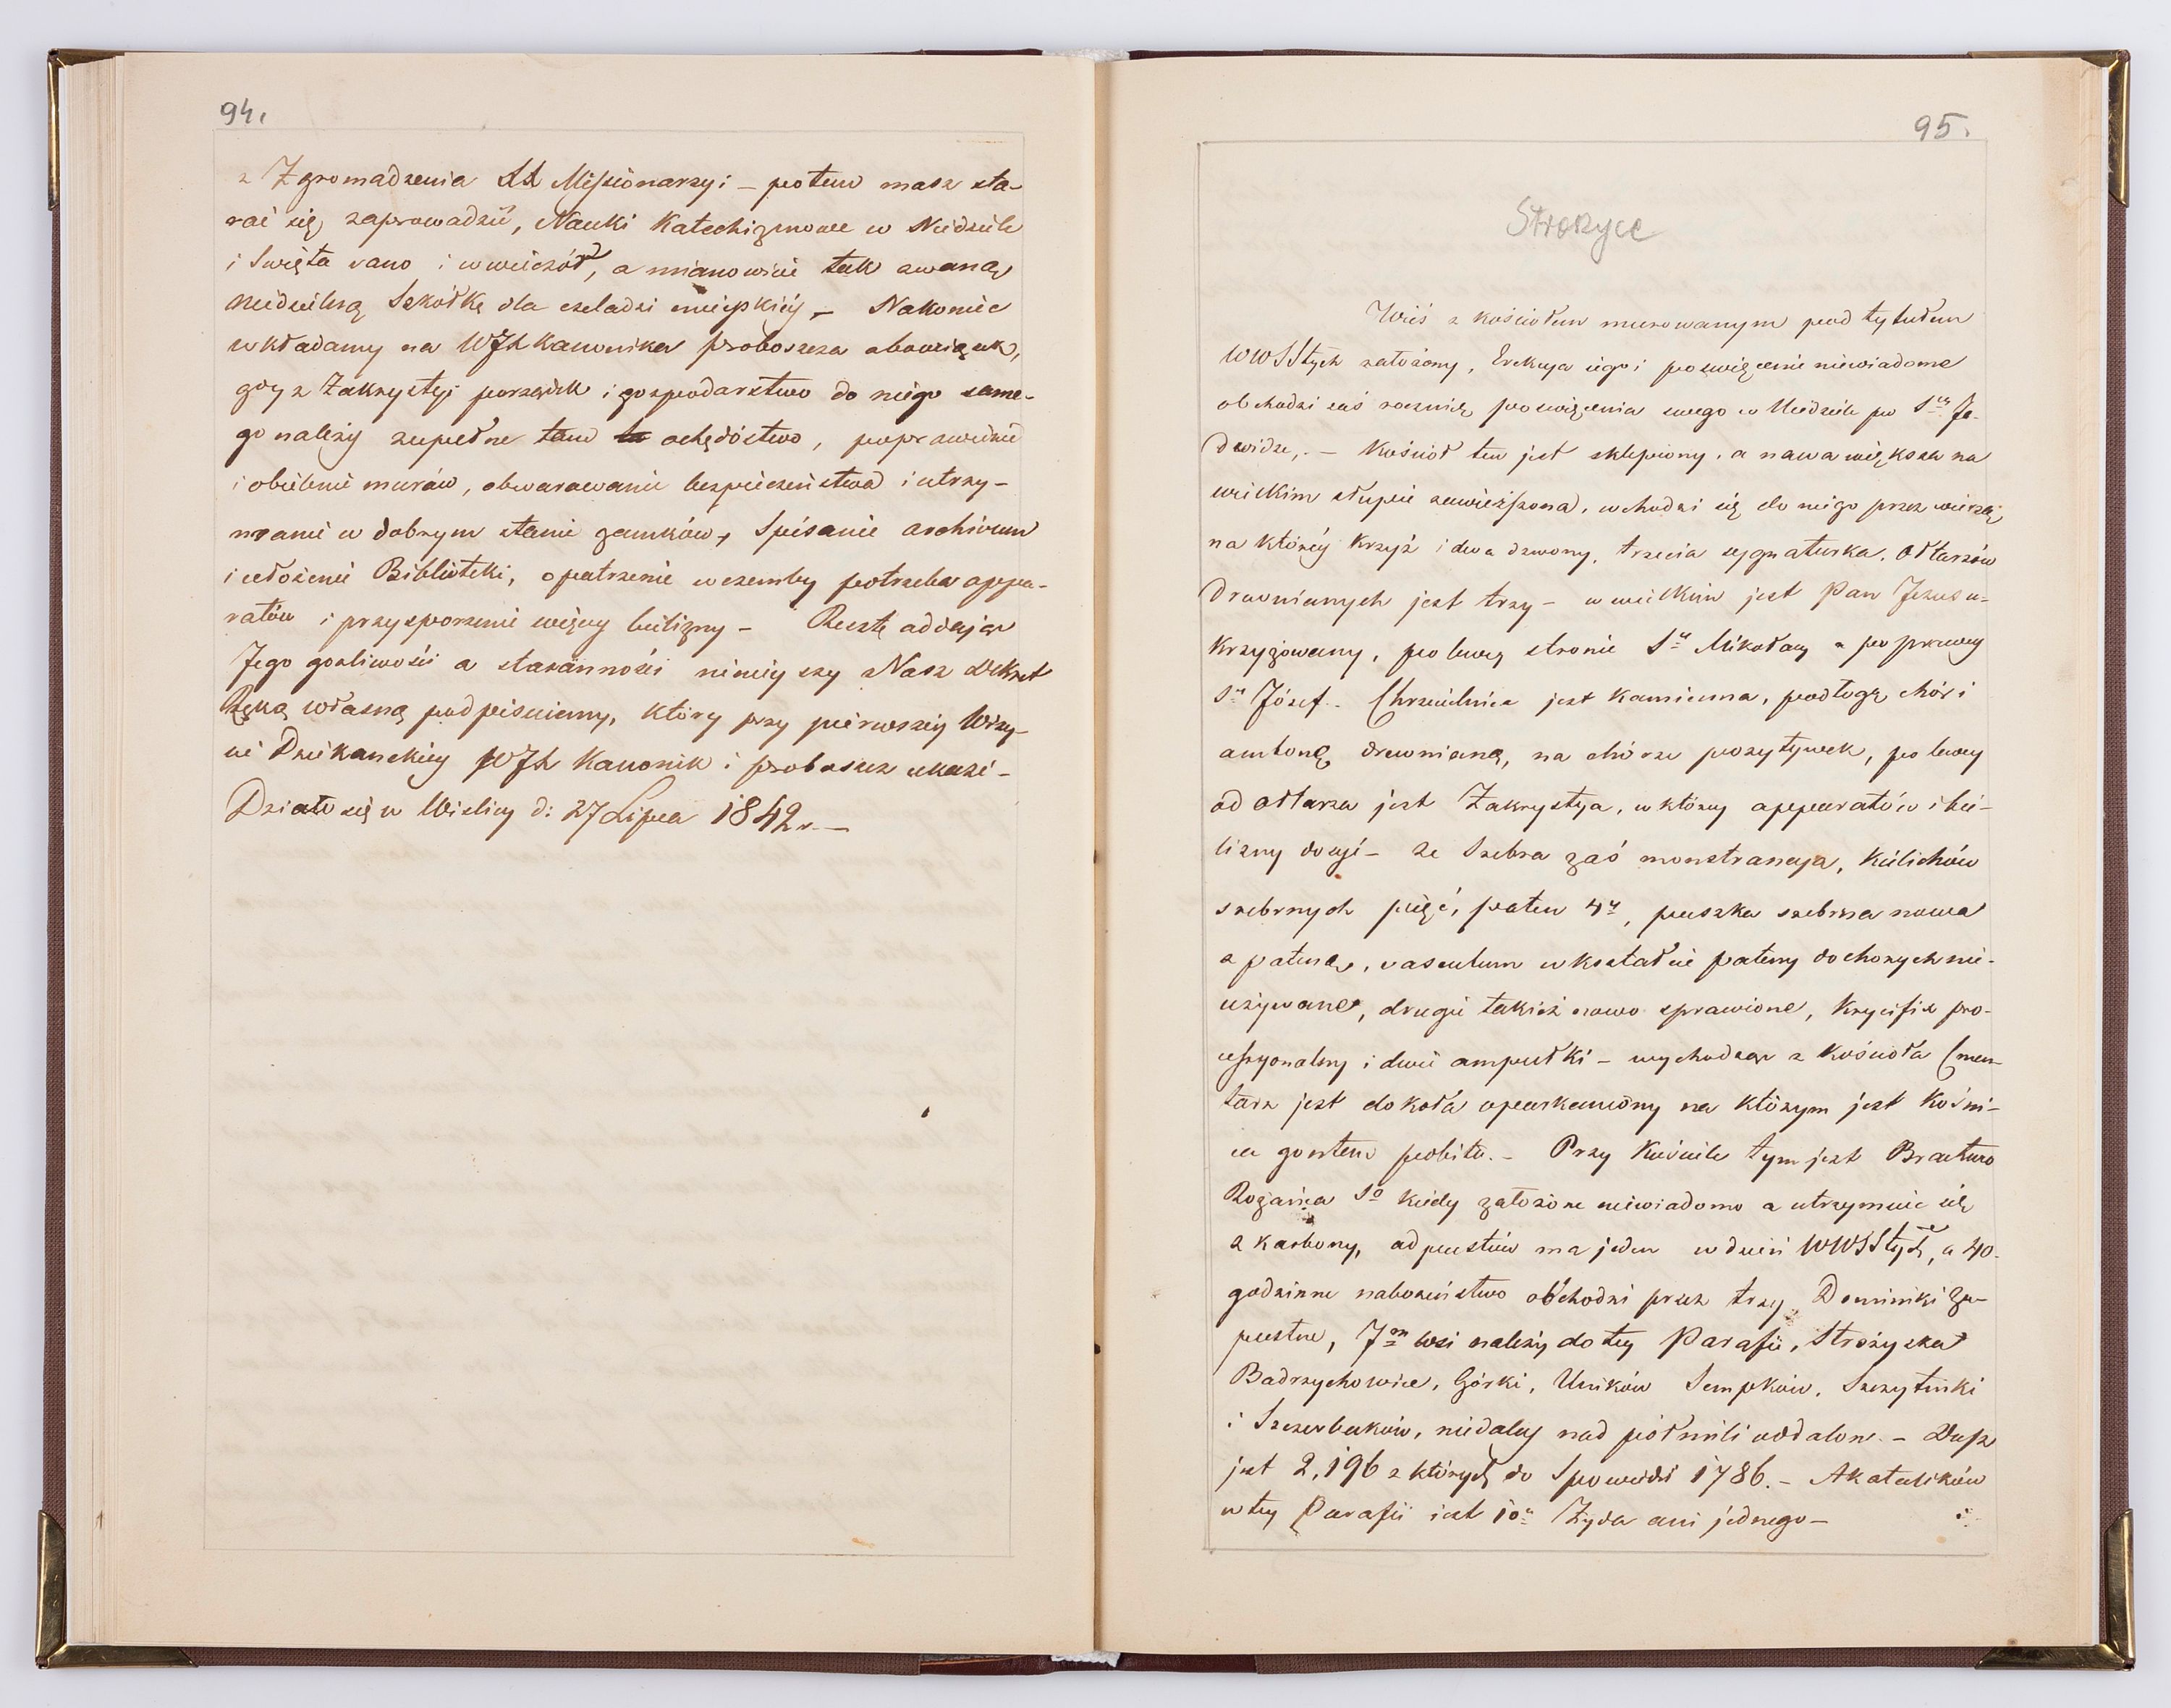 94.
z Zgromadzenia XX Missionarzy; – potem masz sta-
rać się zaprowadzić, Nauki Katechizmowe w Niedziele
i Święta rano i wwieczór, a mianowicie tak zwaną
niedzielną Szkółkę dla czeladzi mieyskiey – Nakoniec
wkładamy na WJX Kanonika proboszcza obowiązek,
gdy z Zakrystyi porządek i gospodarstwo do niego same-
go należy zupełne tam ochędóstwo, poprawienie
i obielenie murów, obwarowanie bezpieczeństwa i utrzy-
manie w dobrym stanie zamków, Spisanie archivum
i ułożenie Biblioteki, opatrzenie w czemby potrzeba appa-
ratów i przysporzenie więcey bielizny – Resztę oddając
Jego gorliwości a staranności ninieyszy Nasz dekret
Ręką własną podpisuiemy, który przy pierwszey Wizy-
cie Dziekanskiey WJX Kanonik i proboszcz okaże –
Działo się w Wislicy d: 27 Lipca 1842 r. –
95.
Strożyce
Wieś z kościołem murowanym pod tytułem
WWSStych założony, Erekcya iego i poswięcenie niewiadome
obchodzi zaś rocznicę poswięcenia swego w Niedziele po Stej Ja-
dwidze, – Kościoł ten jest sklepiony, a nawa większa na
wielkim słupie zawieszona, wchodzi się do niego przez wieżą
na którey krzyż i dwa dzwony, trzecia sygnaturka. Ołtarzów
Drewnianych jest trzy – w wielkim jest Pan Jezus u-
krzyżowany, po lewey stronie Sty Mikołay a po prawey
Sty Józef. Chrzcielnica jest kamienna, podłogę chór i
ambonę drewnianą, na chórze pozytywek, po lewey
od ołtarza jest Zakrystya, w którey apparatów i bie-
lizny dosyć – ze Srebra zaś monstrancya, Kielichów
srebrnych pięć, paten 4ry, puszka srebrna nowa
z pateną, vasculum w kształcie pateny do chorych nie-
używane, drugie takież nowo sprawione, krycifix pro-
cessyonalny i dwie ampułki – wychodząc z kościoła Cmen-
tarz jest dokoła oparkaniony na którym jest Kośni-
ca gontem pobita. – Przy Kościele tym jest Bractwo
Rożańca So kiedy założone niewiadomo a utrzymuie się
z karbony, odpustów ma jeden w dzień WWSStych, a 40.
godzinne nabożeństwo obchodzi przez trzy Dominiki Za-
pustne, 7m wsi należy do tey Parafii, Strożyska
Badrzychowice, Górki, Uników Sempków, Szczytniki
i Szczerbaków, niedaley nad pół mili oddalone. – Dusz
jest 2,196 z których do Spowiedzi 1786. – Akatolików
w tey Parafii iest 10u Żyda ani jednego –